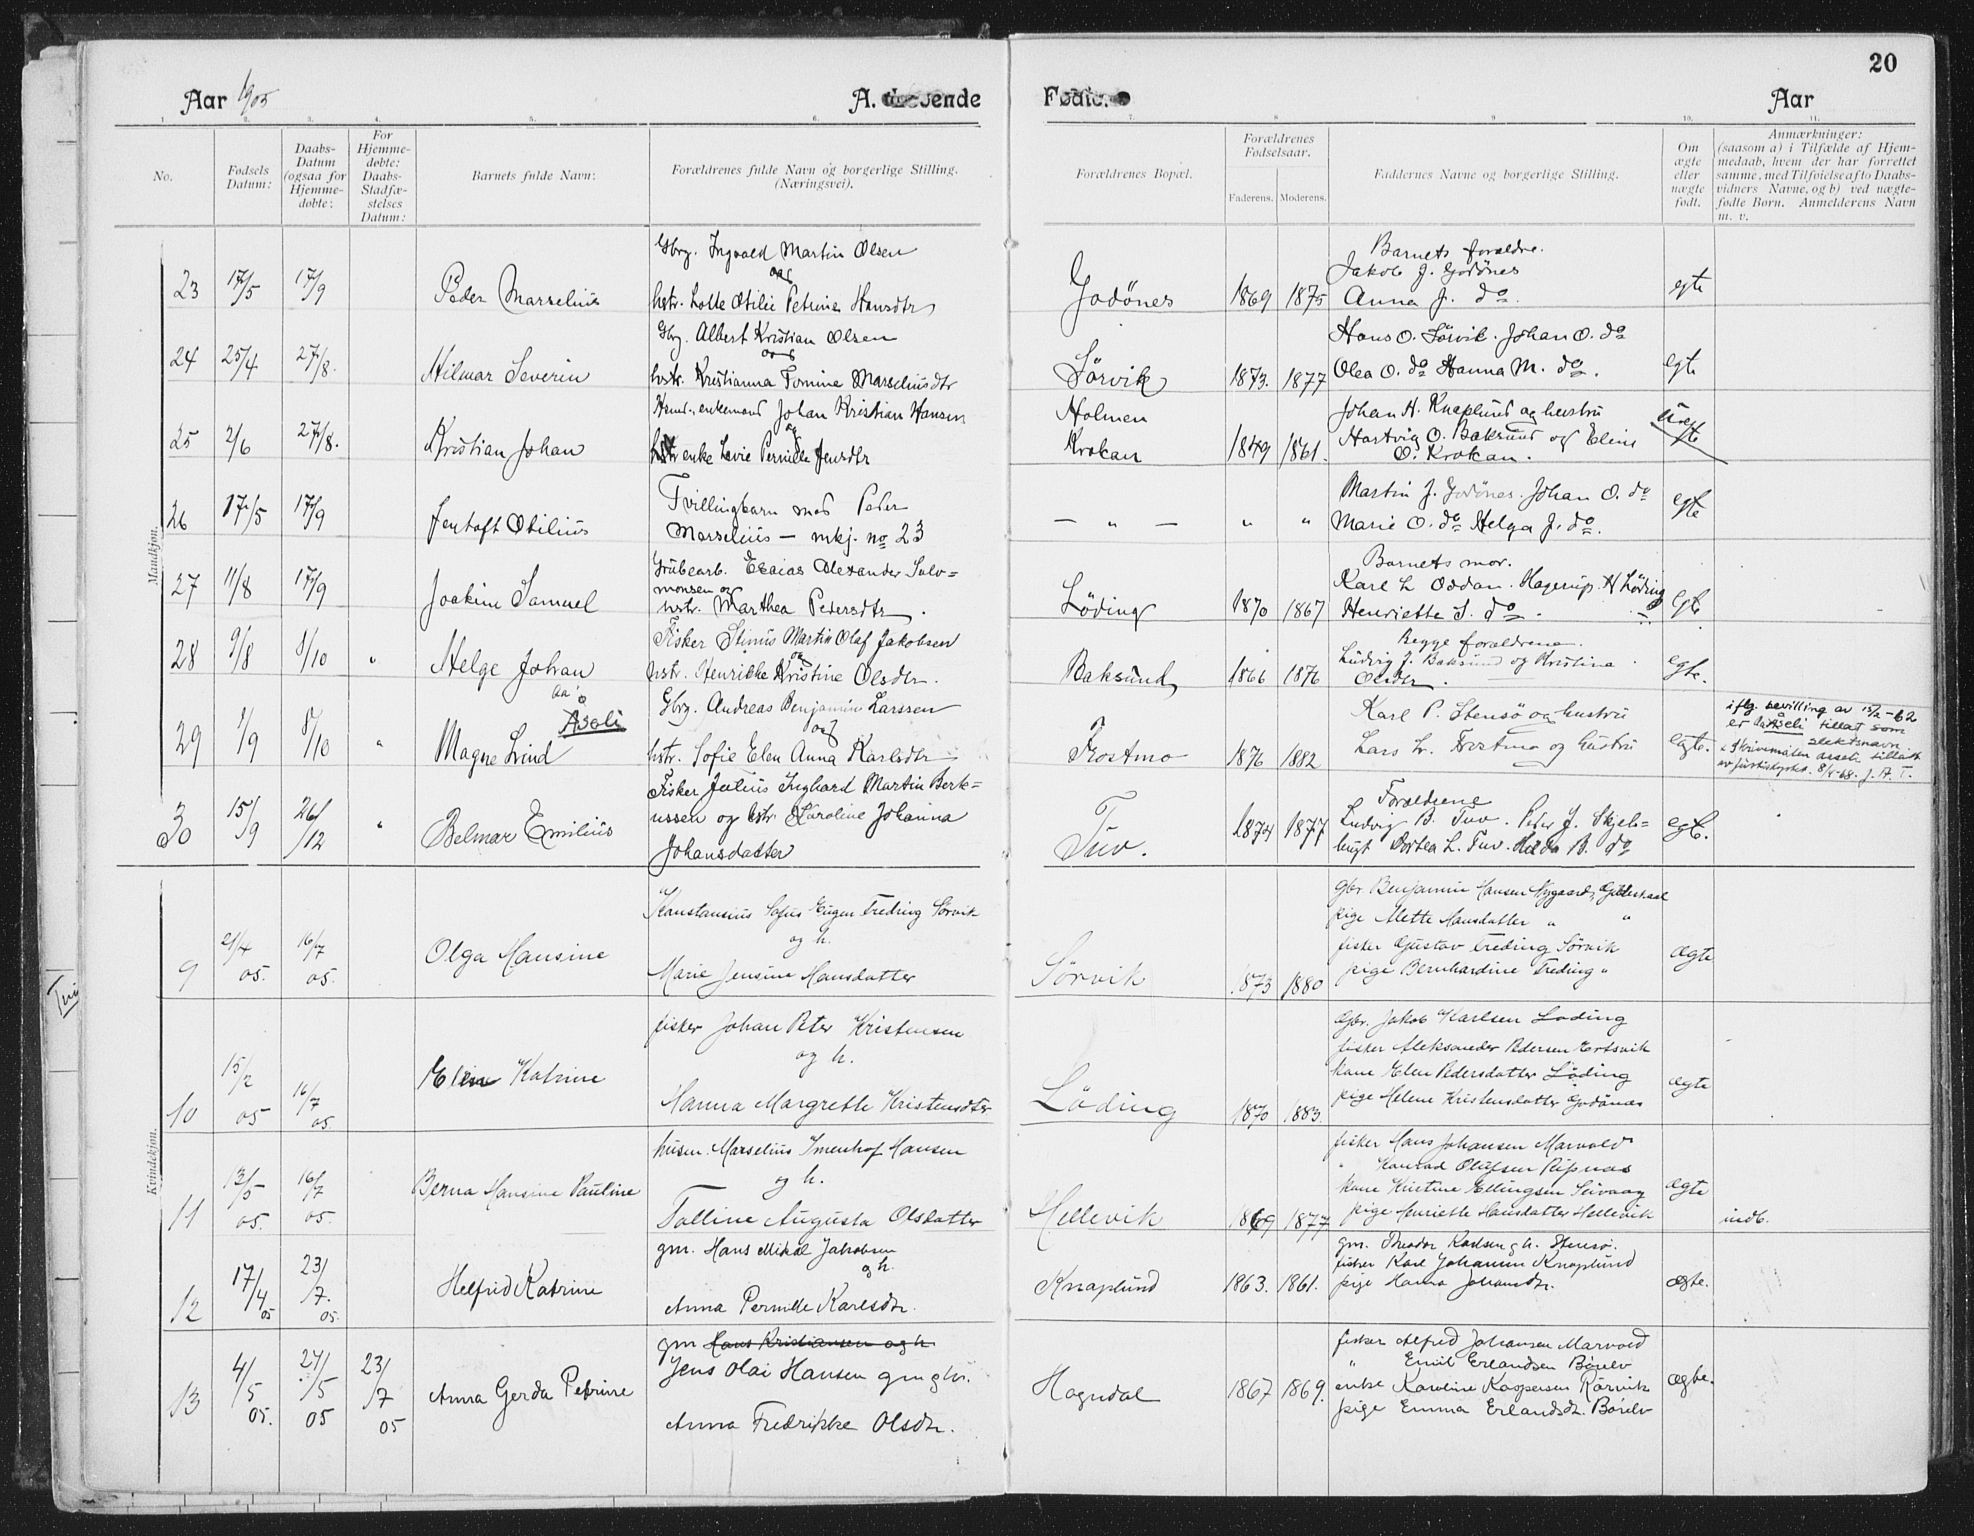 20
Aar 1905
A. Levende
Fødte.
Aar
1. 2. 3. 4. 5. 6. 7. 8. 9. 10. 11.
No.
Fødsels Datum:
Daabs-Datum (ogsaa for Hjemme-døbte:
For Hjemme-døbte: Daabs-Stadfæ-stelses Datum:
Barnets fulde Navn:
Forældrenes fulde Navn og borgerlige Stilling. (Næringsvei).
Forældrenes Bopæl.
Forældrenes Fødselsaar.
Faderens. Moderens.
Faddernes Navne og borgerlige Stilling.
Om ægte eller uægte født.
Anmærkninger:
(saasom a) i Tilfælde af Hjem-
medaab, hvem der har forrettet
samme, med Tilføielse af to Daabs-
vidners Navne, og b) ved uægte-
fødte Børn. Anmelderens Navn
m. v.
Mandkjøn.
23 17/5 17/9 Peder Marselius
Gbrg. Ingvald Martin Olsen
og
hstr. Lotte Otilie Petrine Hansdtr
Godönes 1869 1875
Barnets forældre.
Jakob J. Godönes
Anna J. do.
egte
24 25/4 27/8. Hilmar Severin
Gbrg. Albert Kristian Olsen
og
hstr. Kristianna Tomine Marseliusdtr
Sörvik 1873. 1877
Hans O. Sörvik. Johan O. do
Olea O. do Hanna M. do.
egte
25 2/6 27/8. Kristian Johan
enkemand Johan Kristian Hansen
og
enke Lovie Pernille Jensdtr
Holmen
Krokan 1849 1861.
Johan H. Knaplund og hustru
Hartvig O. Baksund og Eline
O. Krokan.
Uegte
26 17/5 17/9 Jentoft Otilius
Tvillingbarn med Peder
Marselius — mkj. no 23
— " — " "
Martin J. Godönes. Johan O. do
Marie O. do Helga J. do.
egte
27 11/8 17/9 Joakim Samuel
Grubearb. Esaias Alexander Salo=
monsen og
hstr. Marthea Pedersdtr.
Löding 1870 1867
Barnets mor.
Karl L Oddan. Hagerup H Löding
Henriette S. do.
egte
28 9/8 8/10 " Helge Johan
Fisker Stinus Martin Olaf Jakobsen
og
hstr. Henrikke Kristine Olsdtr.
Baksund 1866 1876
Begge forældrene.
Ludvig J. Baksund og Kristina
Olsdtr.
egte.
29 1/9 8/10 " Magne Lind
Aasli
Gbrg. Andreas Benjamin Larssen
og
hstr. Sofie Elen Anna Karlsdtr
Frostmo 1876 1882
Karl P. Stensö og hustru
Lars L. Frostmo og hustru
egte.
iflg. bevilling av 15/2-62
er Aasli tillatt som
slektsnavn
Skrivemåten Aaseli tillatt
av justisdeptet. 8/5-68. J. A. T.
30 15/9 26/12 " Belmar Emilius
Fisker Julius Inghard Martin Bert=
ussen og hstr Karoline Johanna
Johansdatter
Tuv. 1874 1877
Forældrene
Ludvig B. Tuv. Peter J. Skjels=
bugt Dortea L. Tuv. Hilda B. do
egte.
Kvindekjøn.
9 21/4 05. 16/7 05. Olga Hansine
Konstansius Sofus Eugen Freding Sörvik
og h.
Marie Jensine Hansdatter
Sörvik 1873 1880
gbr Benjamin Hansen Nygaard, Gildeskaal
pige Alette Hansdatter " "
fisker Gustav Freding Sörvik
pige Bernhardine Freding "
ægte
10 15/2 05 16/7 05. Eline Katrine
fisker Johan Peter Kristensen
og h.
Hanna Margrethe Kristensdtr
Löding 1870 1883.
Gbr. Jakob Karlsen Löding
fisker Aleksander Pedersen Ertsvik
kone Elen Pedersdatter Löding
pige Helene Kristensdatter Godönes
ægte
11 13/5 05. 16/7 05. Berna Hansine Pauline
husm. Marselius Imenhof Hansen
og h.
Talline Augusta Olsdatter
Hellevik 1869 1877
fisker Hans Johansen Marvold
" Konrad Olufsen Ripnæs
kone Kristine Ellingsen Seivaag
pige Henriette Hansdatter Hellevik
ægte
indb.
12 17/4 05 23/7. 05. Helfrid Katrine
gm. Hans Mikal Jakobsen
og h.
Anna Pernille Karlsdtr.
Knaplund 1863. 1861.
gm. Theodor Karlsen og h. Stensö.
fisker Karl Johansen Knaplund
pige Hanna Johansdtr.
ægte.
13 4/5 05. 24/5 05 23/7 05 Anna Gerda Petrine
gm Hans Kristiansen og h
Jens Olai Hansen gm og h.
Anna Fredrikke Olsdtr.
Hogndal 1867 1869.
fisker Alfred Johansen Marvold
" Emil Erlandsen Börelv
enke Karoline Kaspersen Rörvik
pige Emma Erlandsdtr. Börelv
ægte.